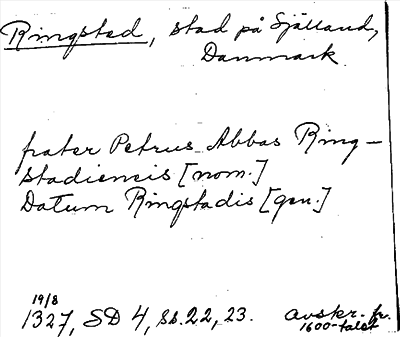 Ringsted, stad på Själland,
Danmark
frater Petrus Abbas Ring-
stadiensis [nom.]
Datum Ringstadis [gen.]
19/8
1327, SD 4, ss. 22, 23. avskr. fr.
1600-talet